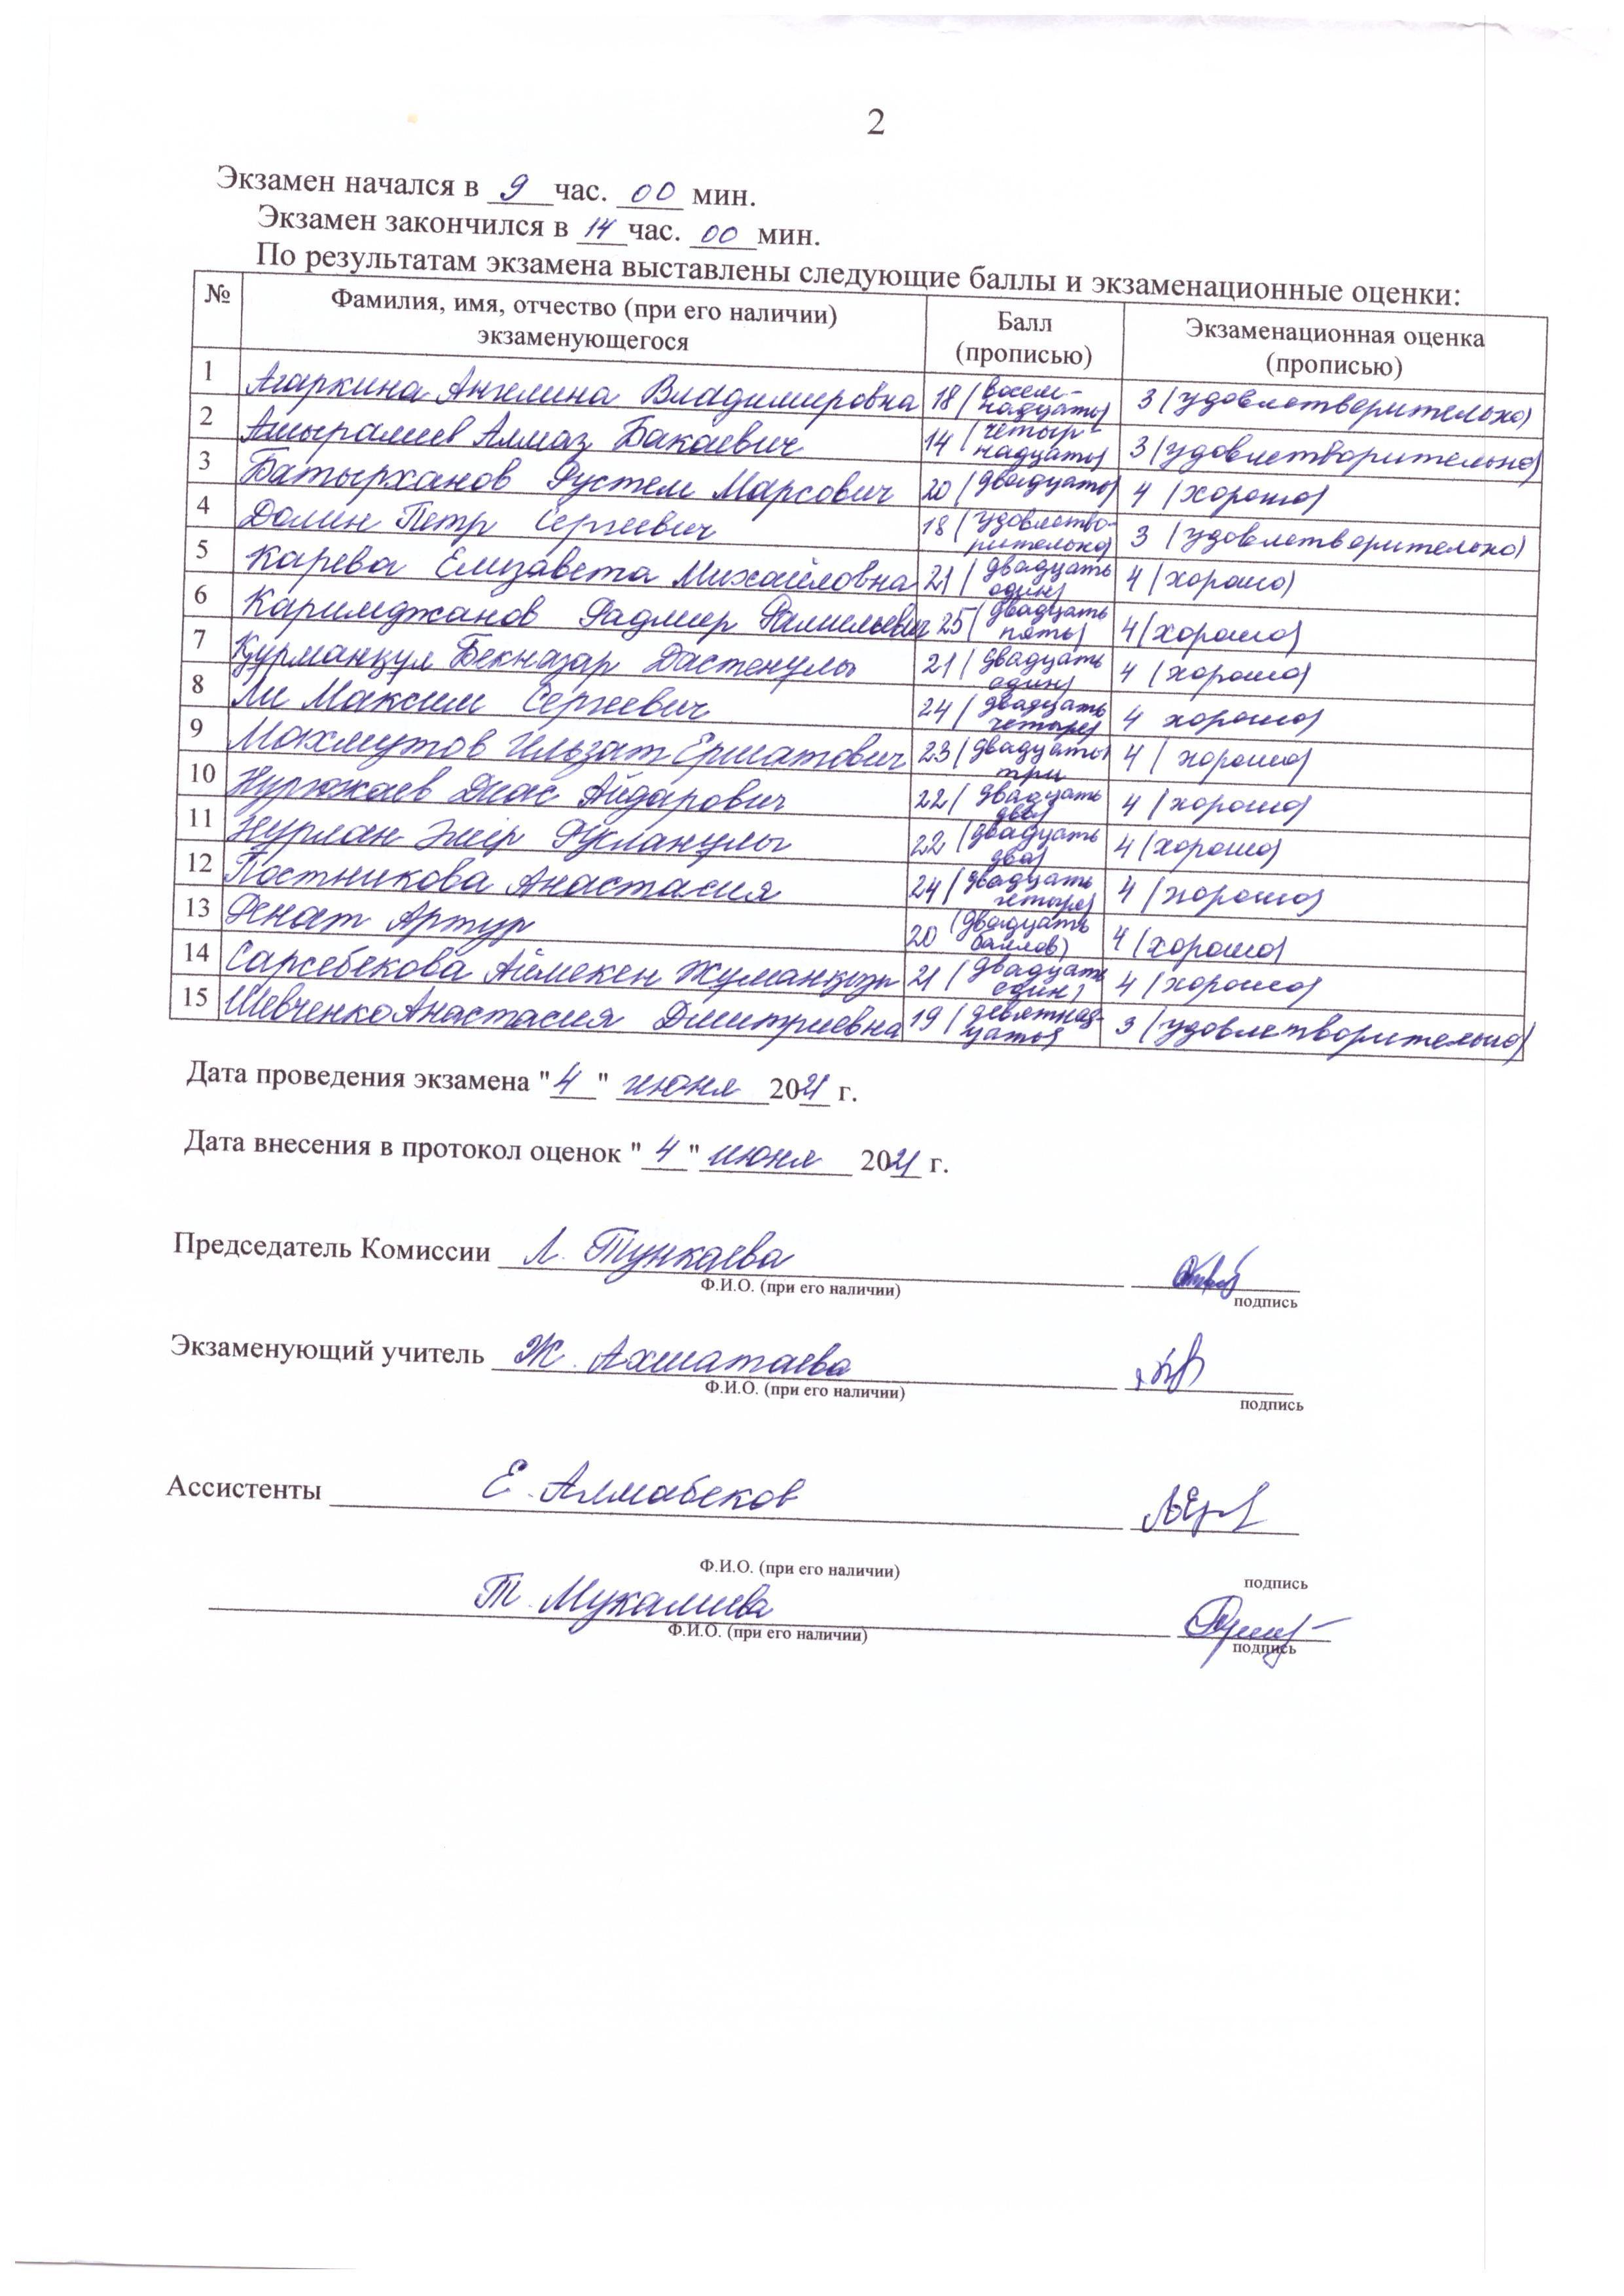 2
Экзамен начался в 9 час. 00 мин.
Экзамен закончился в 14 час. 00 мин.
По результатам экзамена выставлены следующие баллы и экзаменационные оценки:
№ Фамилия, имя, отчество (при его наличии) экзаменующегося Балл (прописью) Экзаменационная оценка (прописью)
1 Агаркина Ангелина Владимировна 18 (восемнадцать) 3 (удовлетворительно)
2 Ашыралиев Алмаз Бакаевич 14 (четырнадцать) 3 (удовлетворительно)
3 Батырханов Рустем Марсович 20 (двадцать) 4 (хорошо)
4 Долин Петр Сергеевич 18 (удовлетворительно) 3 (удовлетворительно)
5 Карева Елизавета Михайловна 21 (двадцать один) 4 (хорошо)
6 Каримджанов Радмир Рамильевич 25 (двадцать пять) 4 (хорошо)
7 Құрманқұл Бекназар Дастенұлы 21 (двадцать один) 4 (хорошо)
8 Ли Максим Сергеевич 24 (двадцать четыре) 4 хорошо)
9 Махмутов Ильзат Ершатович 23 (двадцать три 4 (хорошо)
10 Диас Айдарович 22 (двадцать два) 4 (хорошо)
11 Нурлан 22 (двадцать два) 4 (хорошо)
12 Постникова Анастасия 24 (двадцать четыре) 4 (хорошо)
13 Артур 20 (двадцать баллов) 4 (хорошо)
14 Сарсебекова 21 (двадцать один) 4 (хорошо)
15 Шевченко Анастасия Дмитриевна 19 (девятнадцать) 3 (удовлетворительно)
Дата проведения экзамена "4" июня 2021 г.
Дата внесения в протокол оценок "4" июня 2021 г.
Председатель Комиссии Л. Тункаева
Ф.И.О. (при его наличии) подпись
Экзаменующий учитель Ж. Ахматаева
Ф.И.О. (при его наличии) подпись
Ассистенты Е. Алмабеков
Ф.И.О. (при его наличии) подпись
Т. Мукалиева
Ф.И.О. (при его наличии) подпись